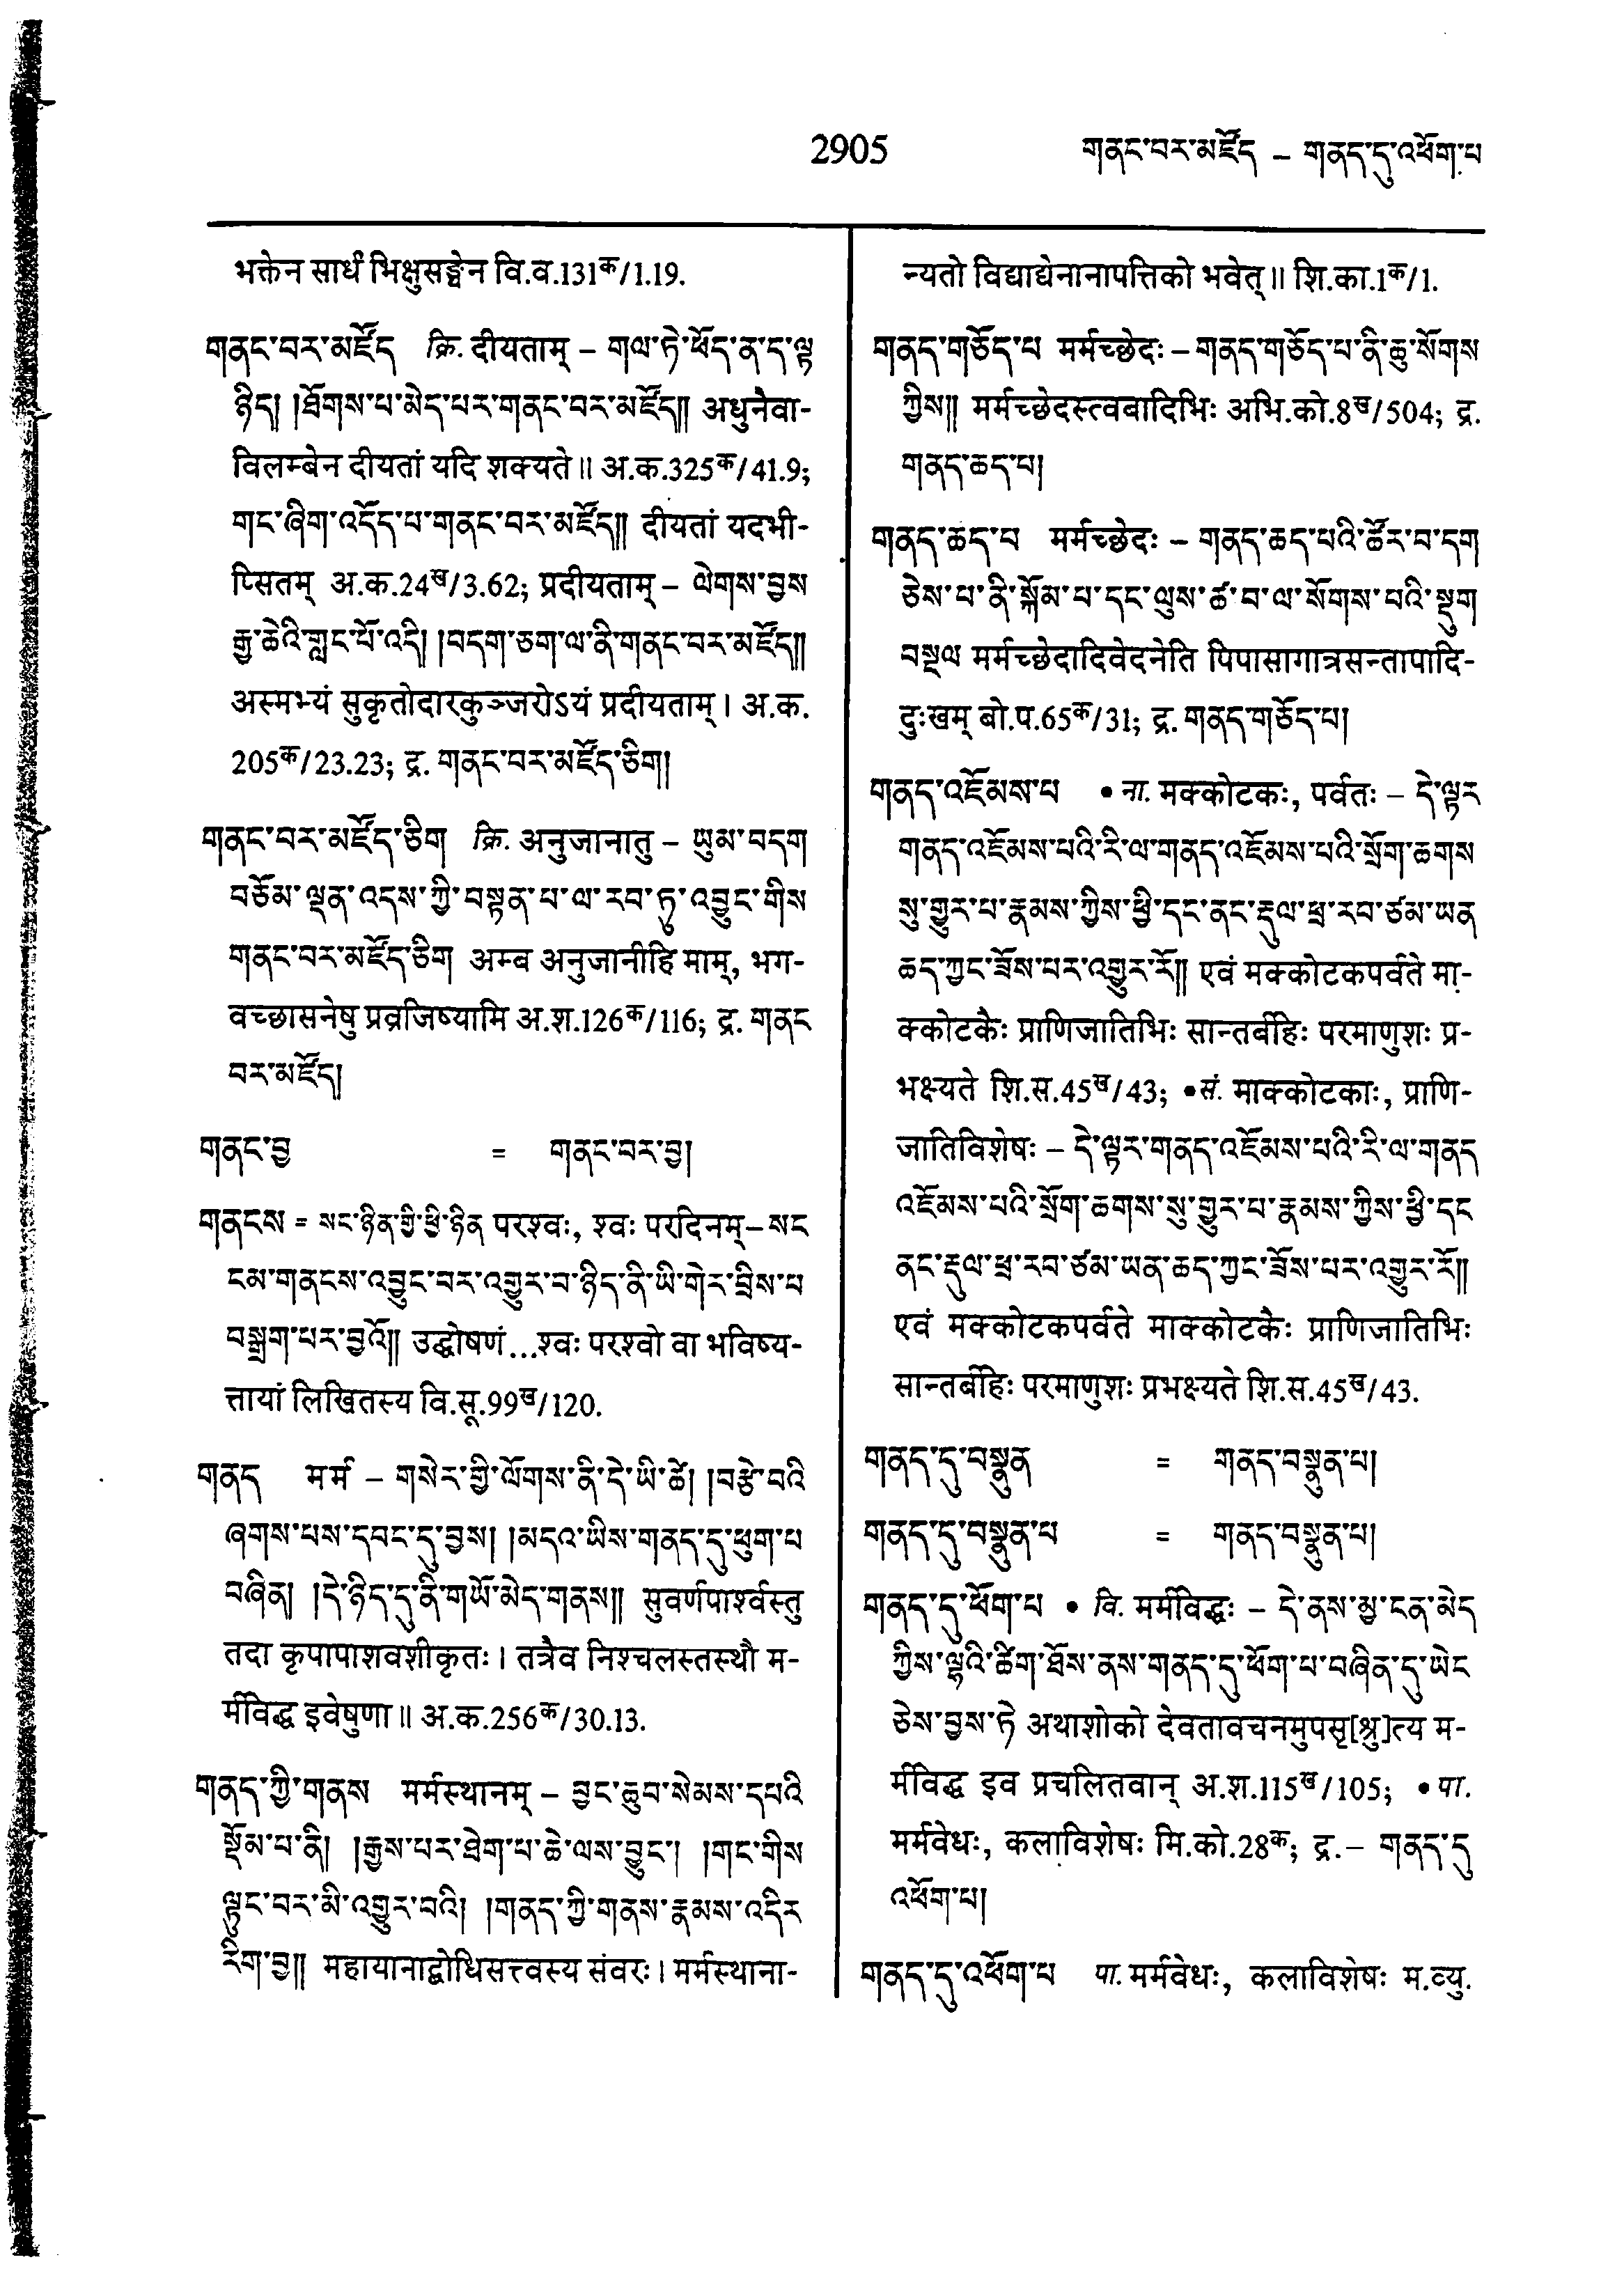 2905
གནང་བར་མཛོད – གནད་དུ་འཕོག་པ
भक्तेन सार्धं भिक्षुसङ्घेन वि.व.131क/1.19.
གནང་བར་མཛོད क्रि. दीयताम् – གལ་ཏེ་ཕོད་ན་ད་ལྟ
ཉིད། །ཐོགས་པ་མེད་པར་གནང་བར་མཛོད།། अधुनैवा-
विलम्बेन दीयतां यदि शक्यते॥ अ.क.325क/41.9;
གང་ཞིག་འདོད་པ་གནང་བར་མཛོད།། दीयतां यदभी-
प्सितम् अ.क.24ख/3.62; प्रदीयताम् – ལེགས་བྱས
རྒྱ་ཆེའི་གླང་པོ་འདི། །བདག་ཅག་ལ་ནི་གནང་བར་མཛོད།།
अस्मभ्यं सुकृतोदारकुञ्जरोऽयं प्रदीयताम्। अ.क.
205क/23.23; द्र. གནང་བར་མཛོད་ཅིག།
གནང་བར་མཛོད་ཅིག क्रि. अनुजानातु – ཡུམ་བདག
བཅོམ་ལྡན་འདས་ཀྱི་བསྟན་པ་ལ་རབ་ཏུ་འབྱུང་གིས
གནང་བར་མཛོད་ཅིག अम्ब अनुजानीहि माम्, भग-
वच्छासनेषु प्रव्रजिष्यामि अ.श.126क/116; द्र. གནང
བར་མཛོད།
གནང་བྱ = གནང་བར་བྱ།
གནངས = སང་ཉིན་གྱི་ཕྱི་ཉིན परश्वः, श्वः परदिनम् – སང
ངམ་གནངས་འབྱུང་བར་འགྱུར་བ་ཉིད་ནི་ཡི་གེར་བྲིས་པ
བསྒྲག་པར་བྱའོ།། उद्घोषणं...श्वः परश्वो वा भविष्य-
त्तायां लिखितस्य वि.सू.99ख/120.
གནད मर्म – གསེར་གྱི་ལོགས་ནི་དེ་ཡི་ཚེ། །བརྩེ་བའི
ཞགས་པས་དབང་དུ་བྱས། །མདའ་ཡིས་གནད་དུ་ཕུག་པ
བཞིན། །དེ་ཉིད་དུ་ནི་གཡོ་མེད་གནས།། सुवर्णपार्श्वस्तु
तदा कृपापाशवशीकृतः। तत्रैव निश्चलस्तस्थौ म-
र्मविद्ध इवेषुणा॥ अ.क.256क/30.13.
གནད་ཀྱི་གནས मर्मस्थानम् – བྱང་ཆུབ་སེམས་དཔའི
སྡོམ་པ་ནི། །རྒྱས་པར་ཐེག་པ་ཆེ་ལས་བྱུང་། །གང་གིས
ལྟུང་བར་མི་འགྱུར་བའི། །གནད་ཀྱི་གནས་རྣམས་འདིར
རིག་བྱ།། महायानाद्बोधिसत्त्वस्य संवरः। मर्मस्थाना-
न्यतो विद्याद्येनानापत्तिको भवेत्॥ शि.का.1क/1.
གནད་གཅོད་པ मर्मच्छेदः – གནད་གཅོད་པ་ནི་ཆུ་སོགས
ཀྱིས།། मर्मच्छेदस्त्वबादिभिः अभि.को.8ख/504; द्र.
གནད་ཆད་པ།
གནད་ཆད་པ मर्मच्छेदः – གནད་ཆད་པའི་ཚོར་བ་དག
ཅེས་པ་ནི་སྐོམ་པ་དང་ལུས་ཚ་བ་ལ་སོགས་པའི་སྡུག
བསྔལ मर्मच्छेदादिवेदनेति पिपासागात्रसन्तापादि-
दुःखम् बो.प.65क/31; द्र. གནད་གཅོད་པ།
གནད་འཇོམས་པ • ना. मक्कोटकः, पर्वतः – དེ་ལྟར
གནད་འཇོམས་པའི་རི་ལ་གནད་འཇོམས་པའི་སྲོག་ཆགས
སུ་གྱུར་པ་རྣམས་ཀྱིས་ཕྱི་དང་ནང་རྡུལ་ཕྲ་རབ་ཙམ་ཡན
ཆད་ཀྱང་ཟོས་པར་འགྱུར་རོ།། एवं मक्कोटकपर्वते मा-
क्कोटकैः प्राणिजातिभिः सान्तर्बहिः परमाणुशः प्र-
भक्ष्यते शि.स.45ख/43; • सं. माक्कोटकाः, प्राणि-
जातिविशेषः – དེ་ལྟར་གནད་འཇོམས་པའི་རི་ལ་གནད
འཇོམས་པའི་སྲོག་ཆགས་སུ་གྱུར་པ་རྣམས་ཀྱིས་ཕྱི་དང
ནང་རྡུལ་ཕྲ་རབ་ཙམ་ཡན་ཆད་ཀྱང་ཟོས་པར་འགྱུར་རོ།།
एवं मक्कोटकपर्वते माक्कोटकैः प्राणिजातिभिः
सान्तर्बहिः परमाणुशः प्रभक्ष्यते शि.स.45ख/43.
གནད་དུ་བསྣུན = གནད་བསྣུན་པ།
གནད་དུ་བསྣུན་པ = གནད་བསྣུན་པ།
གནད་དུ་ཕོག་པ • वि. मर्मविद्धः – དེ་ནས་མྱ་ངན་མེད
ཀྱིས་ལྷའི་ཚིག་ཐོས་ནས་གནད་དུ་ཕོག་པ་བཞིན་དུ་ཡེང
ཅེས་བྱས་ཏེ अथाशोको देवतावचनमुपसृ[श्रु]त्य म-
र्मविद्ध इव प्रचलितवान् अ.श.115ख/105; • पा.
मर्मवेधः, कलाविशेषः मि.को.28क; द्र.– གནད་དུ
འཕོག་པ།
གནད་དུ་འཕོག་པ पा. मर्मवेधः, कलाविशेषः म.व्यु.